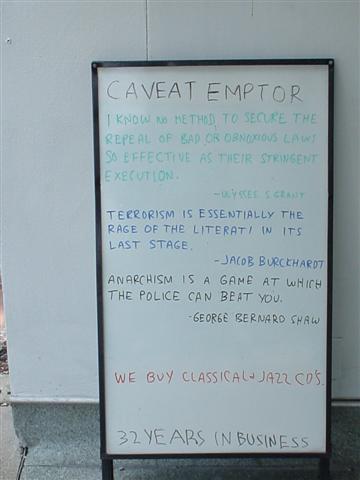 CAVEAT EMPTOR
I KNOW NO METHOD TO SECURE THE
REPEAL OF BAD OR OBNOXIOUS LAWS
SO EFFECTIVE AS THEIR STRINGENT
EXECUTION.
-ULYSSES S GRANT
TERRORISM IS ESSENTIALLY THE
RAGE OF THE LITERATI IN ITS
LAST STAGE.
-JACOB BURCKHARDT
ANARCHISM IS A GAME AT WHICH
THE POLICE CAN BEAT YOU.
-GEORGE BERNARD SHAW
WE BUY CLASSICAL + JAZZ CD'S.
32 YEARS IN BUSINESS